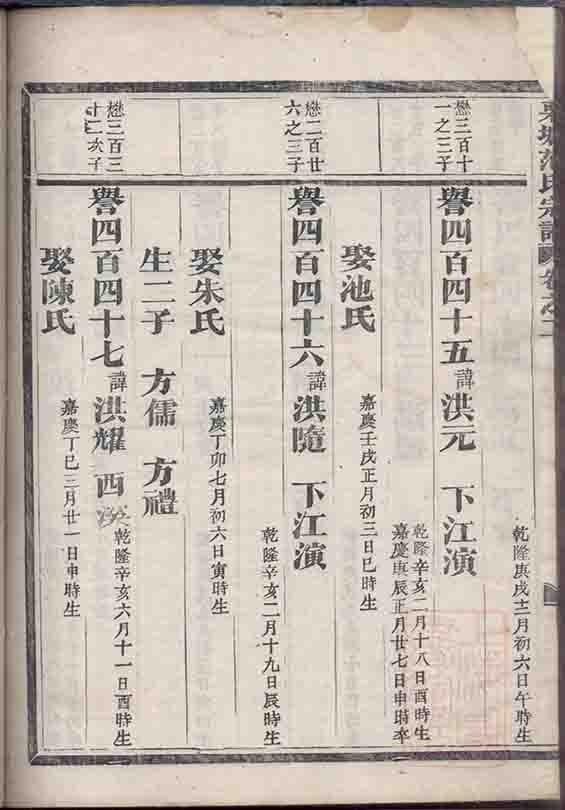 氏宗譜 卷之二
乾隆庚戌十二月初六日午時生
懋三百十
一之三子
譽四百四十五 諱 洪元 下江演
乾隆辛亥二月十八日酉時生
嘉慶庚辰正月廿七日申時卒
娶池氏 嘉慶壬戌正月初三日巳時生
懋二百廿
六之三子
譽四百四十六 諱 洪隨 下江演
乾隆辛亥二月十九日辰時生
娶朱氏 嘉慶丁卯七月初六日寅時生
生二子 方儒 方禮
懋三百三
十二次子
譽四百四十七 諱 洪耀 西
乾隆辛亥六月十一日酉時生
娶陳氏 嘉慶丁巳三月廿一日申時生